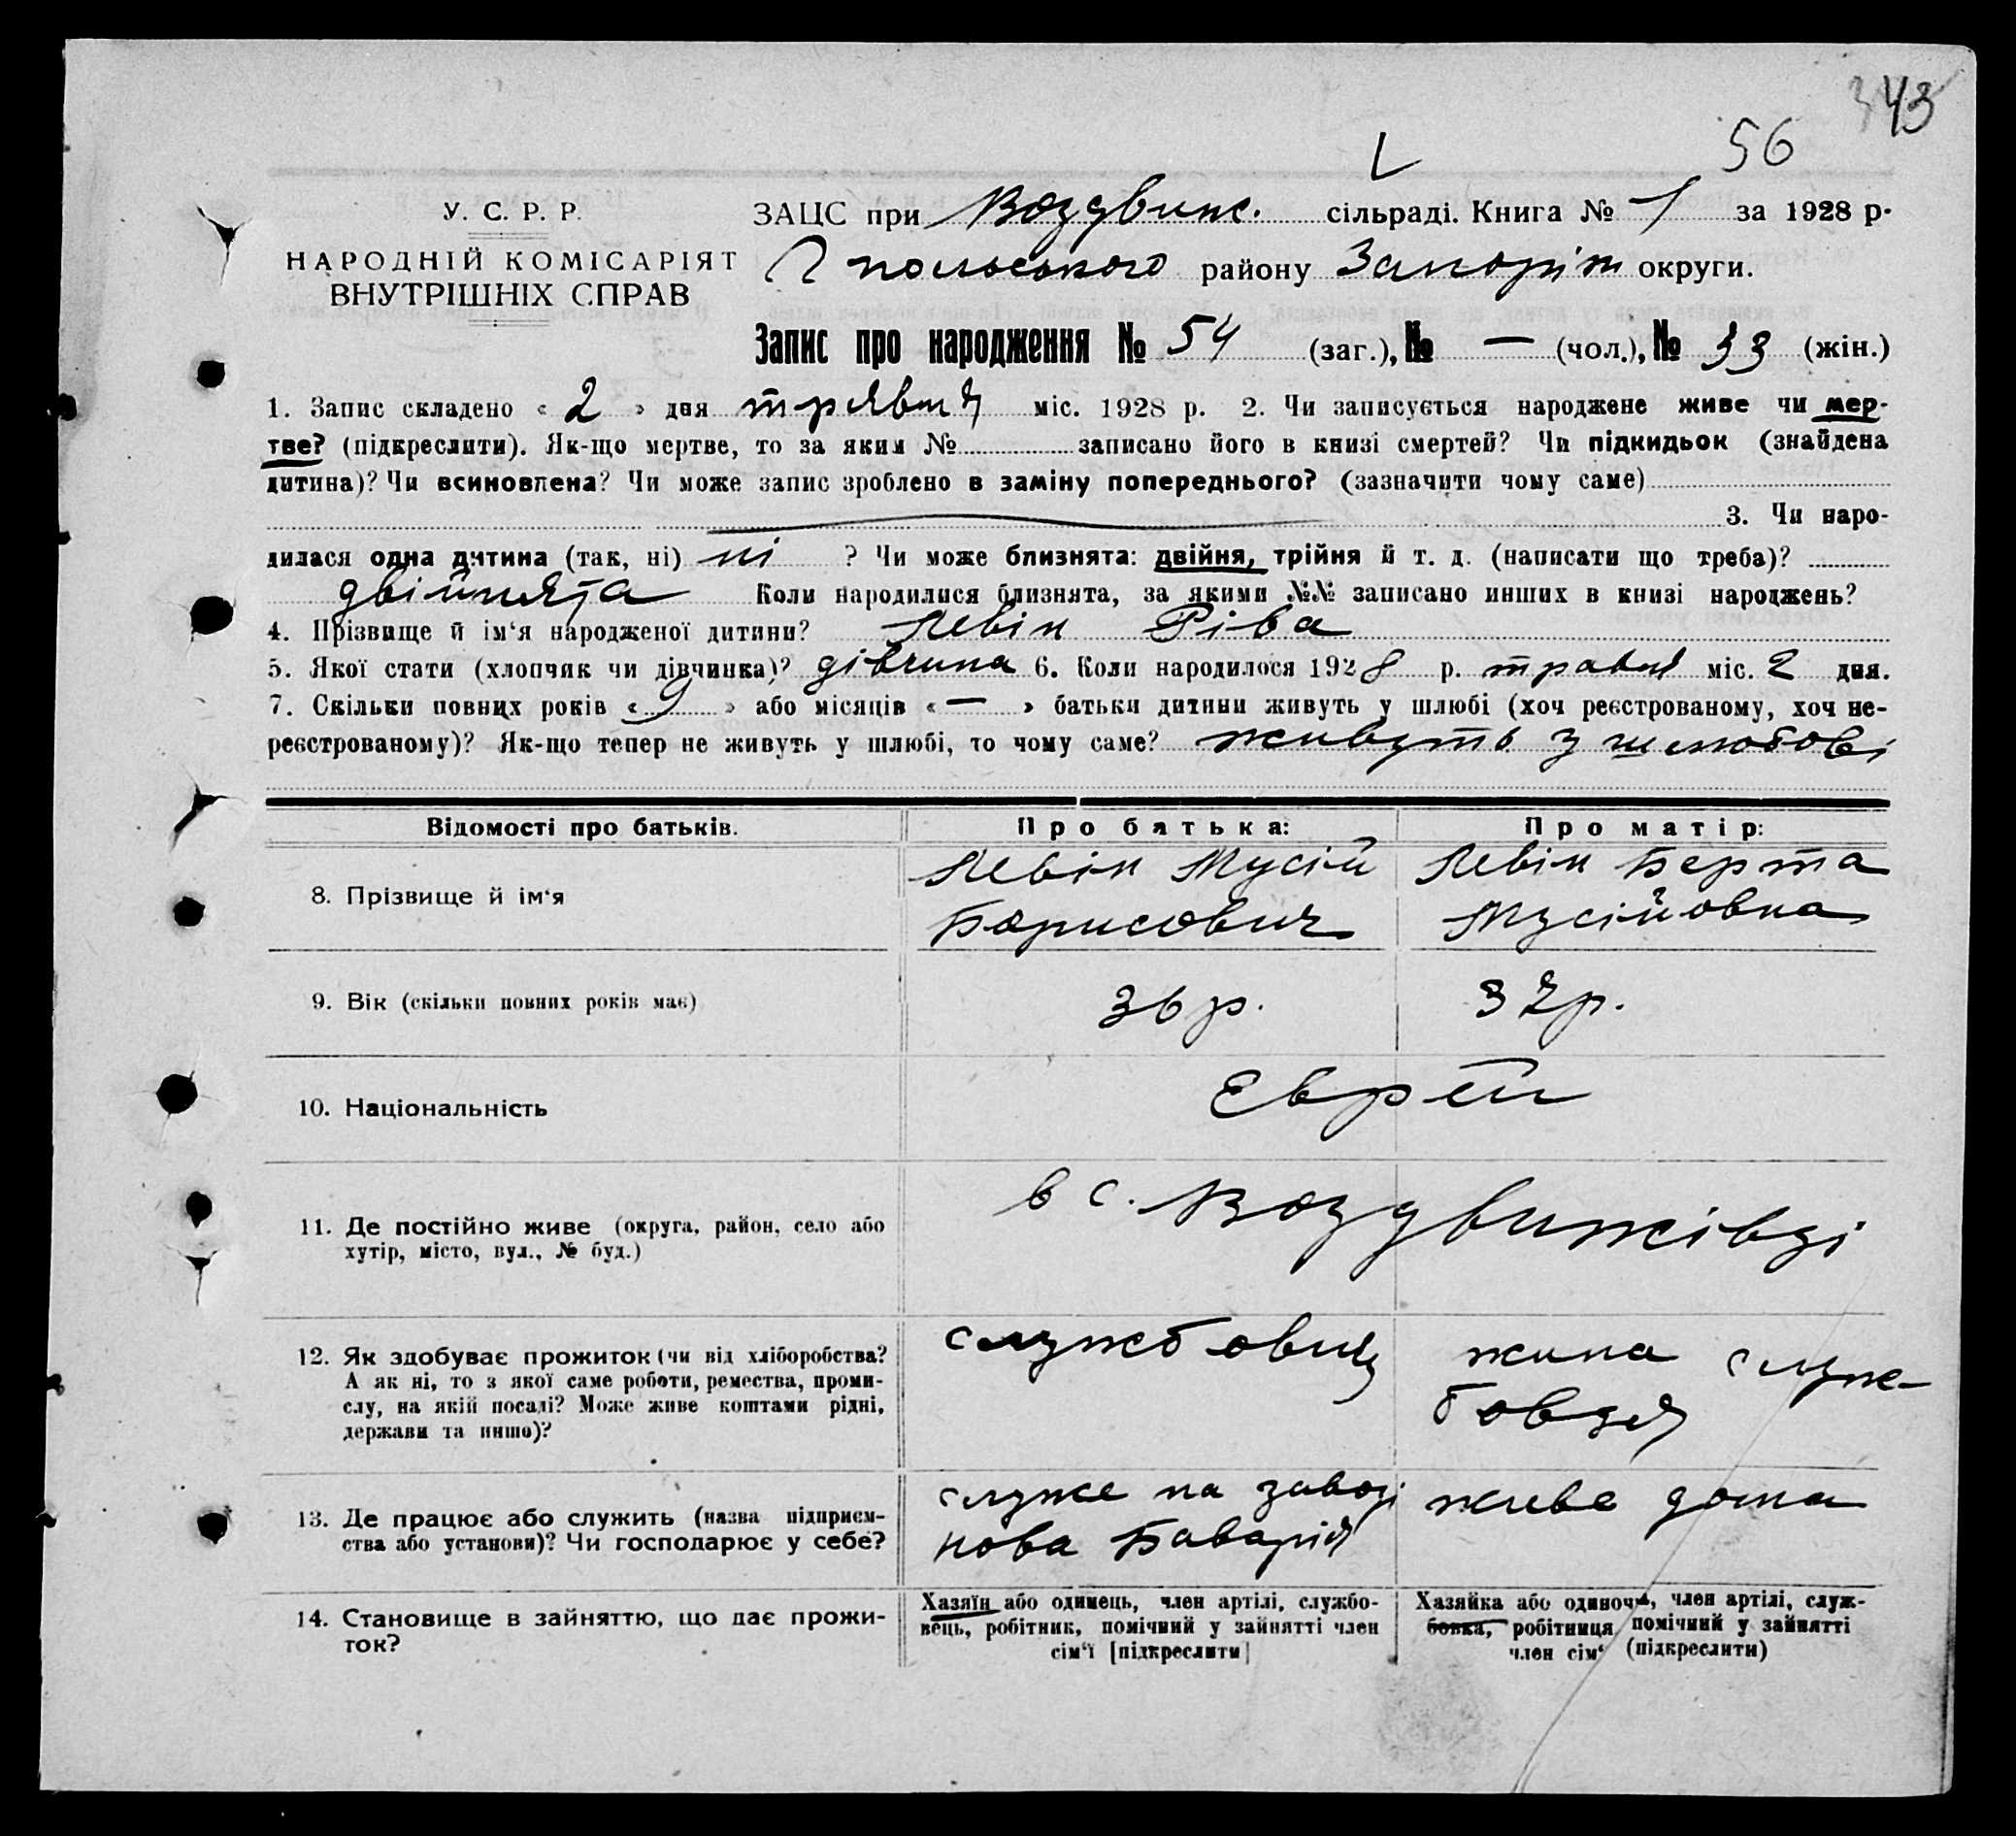 343
56
У. С. Р. Р.
НАРОДНІЙ КОМІСАРІЯТ
ВНУТРІШНІХ СПРАВ
ЗАЦС при Воздвиж. сільраді. Книга № 1 за 1928 р.
Г польського району Запоріж округи.
Запис про народження № 54 (заг.), № — (чол.), № 33 (жін.)
1. Запис складено « 2 » дня травня міс. 1928 р. 2. Чи записується народжене живе чи мер-
тве? (підкреслити). Як-що мертве, то за яким № записано його в книзі смертей? Чи підкидьок (знайдена
дитина)? Чи всиновлена? Чи може запис зроблено в заміну попереднього? (зазначити чому саме)
3. Чи наро-
дилася одна дитина (так, ні) ні ? Чи може близнята: двійня, трійня й т. д. (написати що треба)?
двійнята Коли народилися близнята, за якими №№ записано инших в книзі народжень?
4. Прізвище й ім‘я народженої дитини? Левін Ріва
5. Якої стати (хлопчик чи дівчинка)? дівчина 6. Коли народилося 1928 р. травня міс. 2 дня.
7. Скільки повних років « 9 » або місяців « — » батьки дитини живуть у шлюбі (хоч реєстрованому, хоч не-
реєстрованому)? Як-що тепер не живуть у шлюбі, то чому саме? живуть у шлюбові
Відомості про батьків. Про батька: Про матір:
8. Прізвище й ім‘я Левін Мусій Левін Берта
Борисович Мусійовна
9. Вік (скільки повних років має) 36 р. 37 р.
10. Національність Еврей
11. Де постійно живе (округа, район, село або
хутір, місто, вул., № буд.)
в с. Воздвижівці
12. Як здобуває прожиток (чи від хліборобства?
А як ні, то з якої саме роботи, ремества, проми-
слу, на якій посаді? Може живе коштами рідні,
держави та инше)?
службовиц
жина служ-
бовця
13. Де працює або служить (назва підприєм-
ства або установи)? Чи господарює у себе?
служе на заводі
нова Баварія
живе дома
14. Становище в зайняттю, що дає прожи-
ток?
Хазяїн або одинець, член артілі, службо-
вець, робітник, помічний у зайнятті член
сім‘ї [підкреслити]
Хазяйка або одиночка, член артілі, служ-
бовка, робітниця, помічний у зайнятті
член сім‘ (підкреслити)